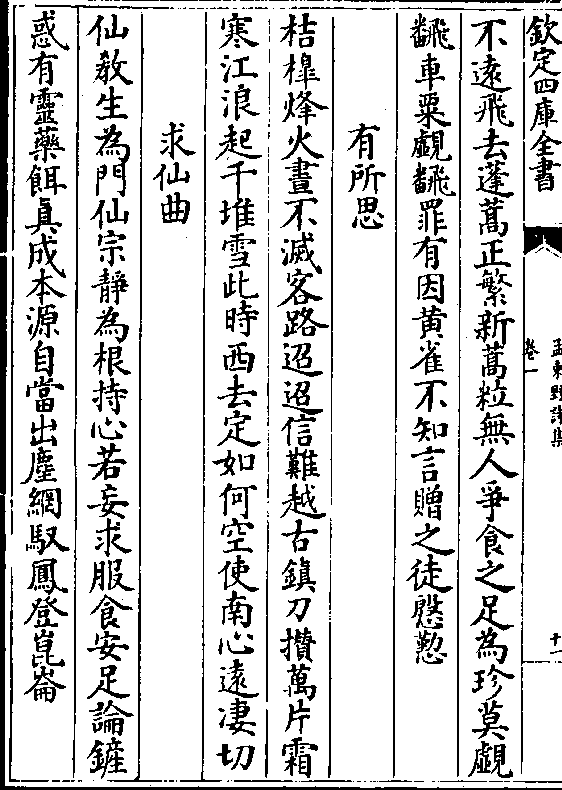 欽定四庫全書
孟東野詩集
卷一
十一
不遠飛去蓬蒿正繁新蒿粒無人爭食之足為珍莫覷
翻車粟覷翻罪有因黄雀不知言贈之徒慇懃
有所思
桔槹烽火晝不滅客路迢迢信難越古鎮刀攢萬片霜
寒江浪起千堆雪此時西去定如何空使南心遠凄切
求仙曲
仙敎生為門仙宗靜為根持心若妄求服食安足論鏟
惑有靈藥餌真成本源自當出塵網馭鳳登崑崙